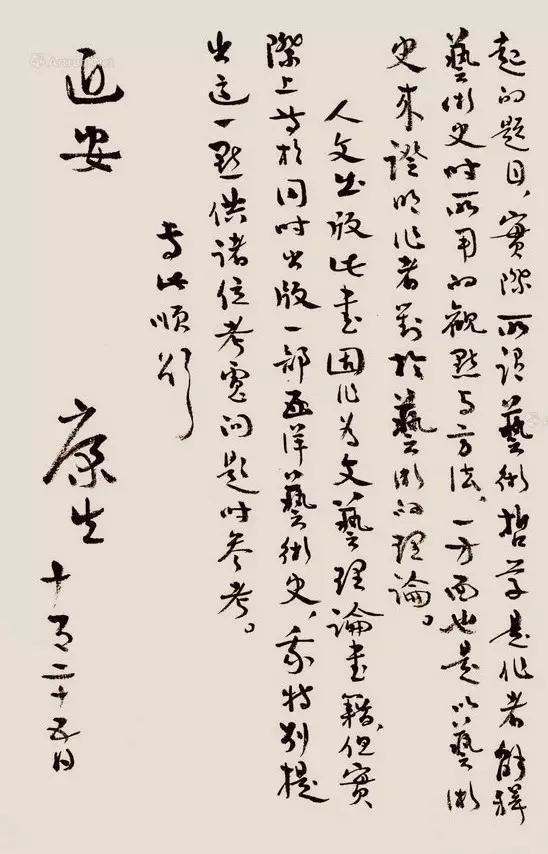 起的題目,實際所謂藝術哲学是作者解釋
藝術史时所用的觀點与方法,一方面也是以藝術
史來證明作者對於藝術的理論。
人文出版此書固作为文藝理論書籍,但實
際上等於同时出版一部西洋藝術史,我特别提
出這一點供諸位考慮问題时参考。
专此順颂
近安
康生
十月二十五日